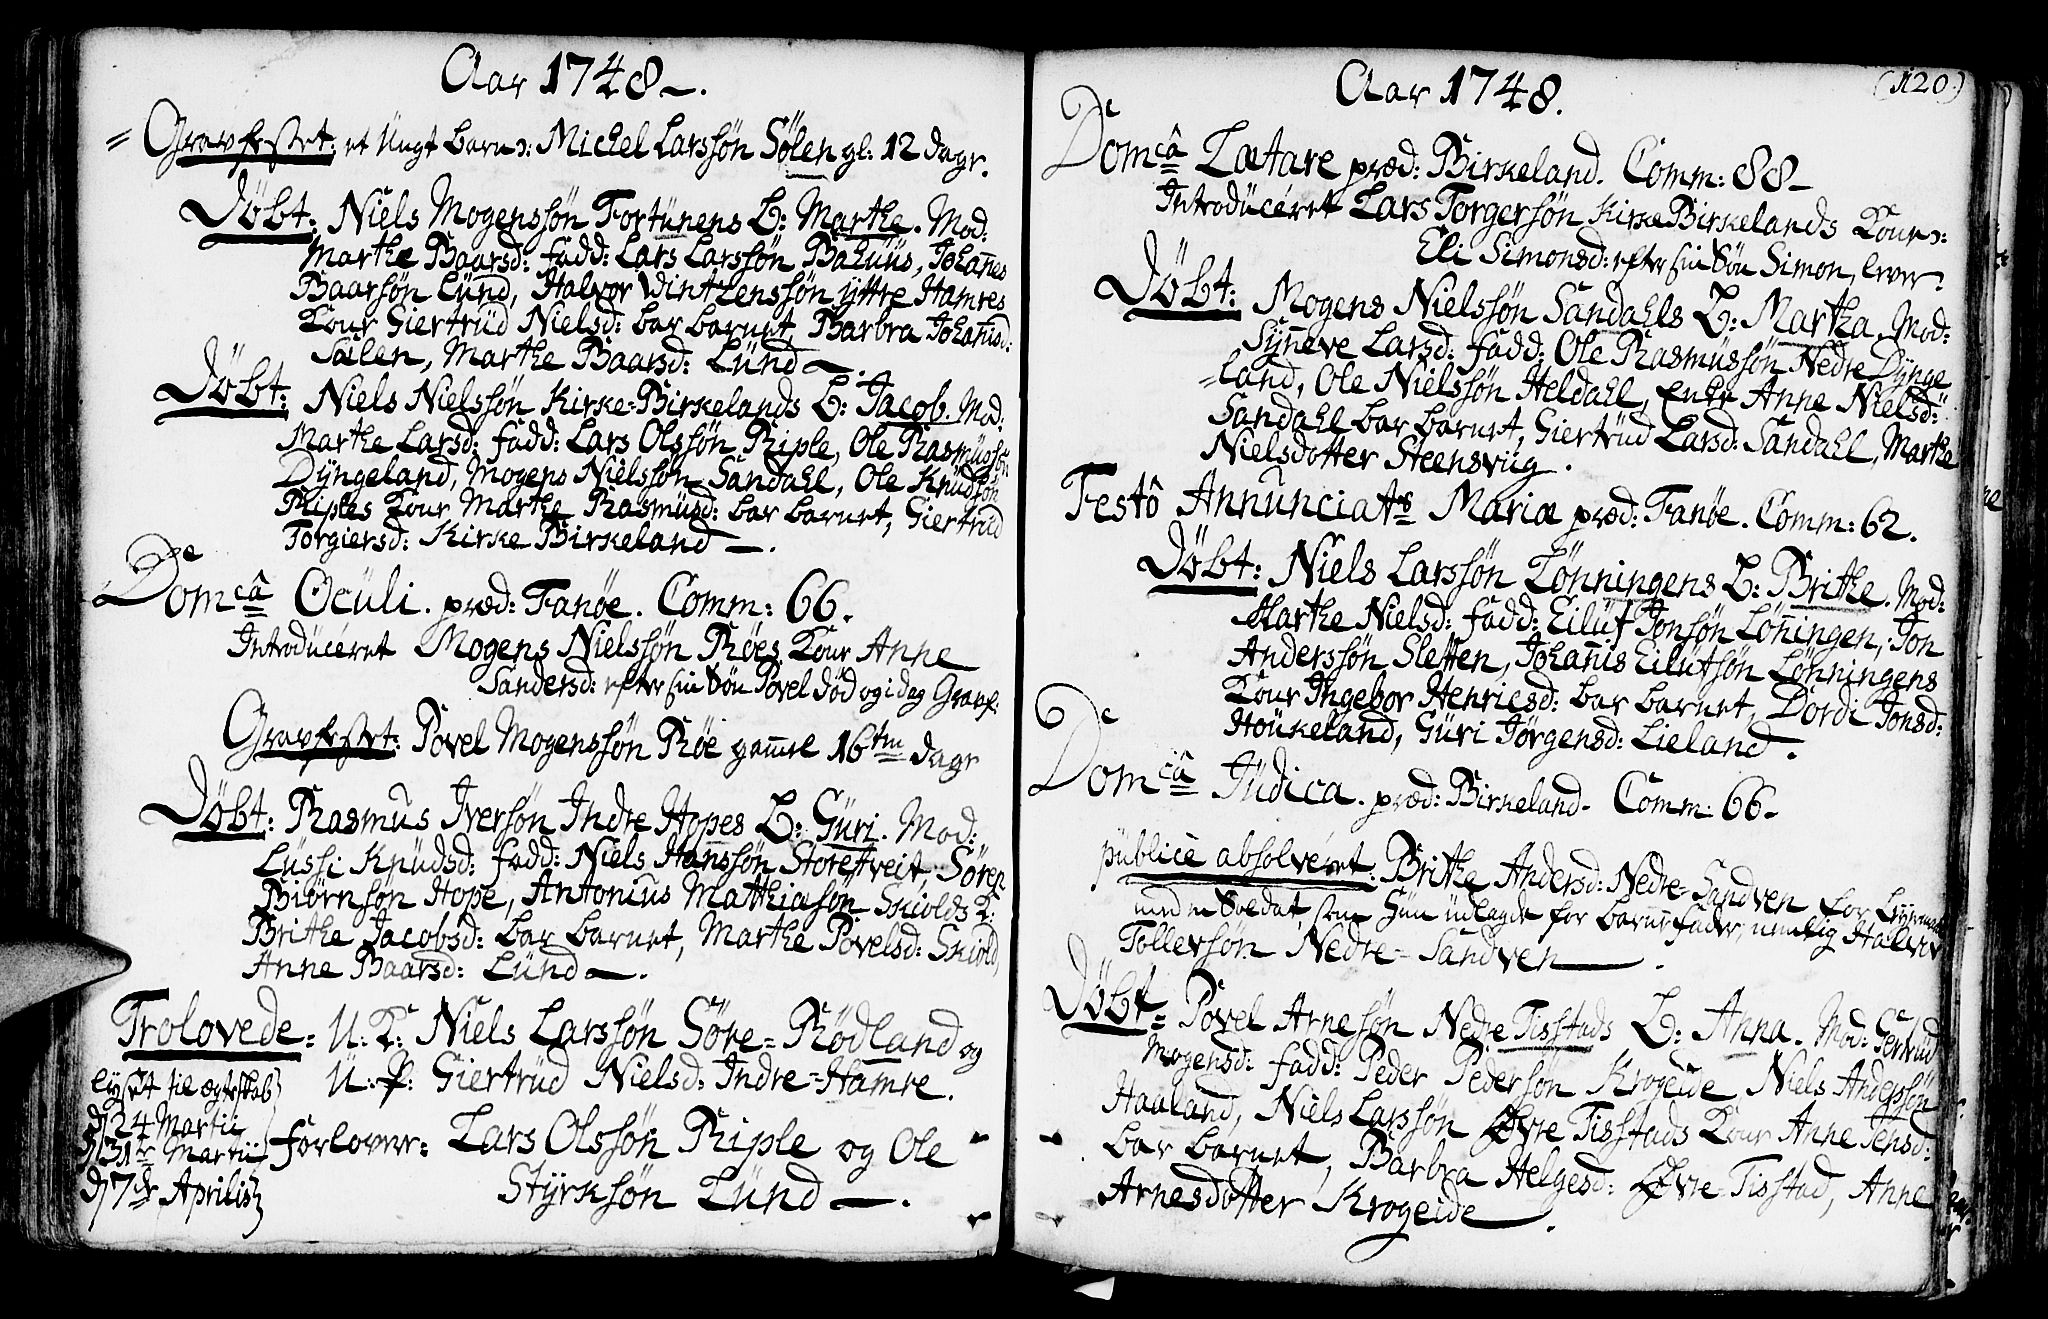 Aar 1748.
= Gravfestet: et Ungt barn: Michel Larssøn Sølen gl: 12 dage.
Døbt: Niels Mogenssøn Fortunens B: Marthe. Mod:
Marthe Baarsd: fadd: Lars Larssøn Bahuus, Johañes
Baarsøn Lünd, Halvor Vinthenssøn yttre Hamres
Kone Giertrüd Nielsd: bar barnet, Barbra Johañisd:
Sælen, Marthe Baarsd: Lünd.
Døbt: Niels Nielssøn Kirke-Birkelands B: Jacob. Mod:
Marthe Larsd: fadd: Lars Olssøn Riple, Ole Rasmüssøn
Dyngeland, Mogens Nielssøn Sandahl, Ole Knüdsøn
Riples Kone Marthe Rasmüsd: bar barnet, Giertrüd
Torgiersd: Kirke Birkeland.
Domcâ Oculi. præd: Fanøe. Comm: 66.
Introdüceret Mogens Nielssøn Røes Kone Anne
Sandersd: efter sin Søn Povel død og i dag Gravf:
Gravfestet: Povel Mogenssøn Røe gam̃el 16ten dage
Døbt: Rasmus Iversøn Indre Hopes B: Güri. Mod:
Lüssi Knüdsd: fadd: Niels Hanssøn Storetveit, Søren
Biørnsøn Hope, Antonius Mathiasøn Skiolds K:
Brithe Jacobsd: bar barnet, Marthe Povelsd: Skiold
Anne Baarsd: Lünd.
Trolovede: U. K: Niels Larssøn Søre-Rødland og
U: P: Giertrüd Nielsd: Indre-Hamre.
lyset til ægteskab
d 24 Martii
d 31te Martii
d 7de Aprilis
Forlover: Lars Olssøn Riple og Ole
Styrksøn Lünd.
Aar 1748.
(120)
Domcâ Lætare præd: Birkeland. Comm: 88
Introdüceret Lars Torgersøn Kirke Birkelands Kone:
Eli Simonsd: efter sin Søn Simon, lever.
Døbt: Mogens Nielssøn Sandahls B: Martha. Mod:
Syñeve Larsd: fadd: Ole Rasmüssøn Nedre Dynge
=land, Ole Nielssøn Heldahl, Enke Anne Nielsd:
Sandahl bar barnet, Giertrüd Larsd: Sandahl, Marthe
Nielsdotter Steensvüg.
Festô Annunciats Mariæ præd: Fanøe. Comm: 62.
Døbt: Niels Larssøn Lønningens B: Brithe. Mod:
Marthe Nielsd: fadd: Eilüf Jonsøn Løñingen, Jon
Anderssøn Sletten, Johañis Eilüfsøn Lønningens
Kone Ingebor Henricsd: bar barnet, Dordi Jonsd:
Houkeland, Güri Jørgensd: Lieland.
Domcâ Judica. præd: Birkeland. Comm: 66.
püblicè absolveret: Brithe Andersd: Nedre-Sandven for Leyermaal
med en Soldat som hun udlagde for barnefader, nemlig Halvor
Tollevsøn Nedre-Sandven.
Døbt= Povel Arnesøn Nedre Tisstads B: Anna. Mod: Gertrüd
Mogensd: fadd: Peder Pedersøn Krogeide, Niels Anderssøn
Haaland, Niels Larssøn Øvre Tisstads Kone Anne Jensd:
bar barnet, Barbra Helgesd: Øvre-Tisstad, Anne
Arnesdotter Krogeide.